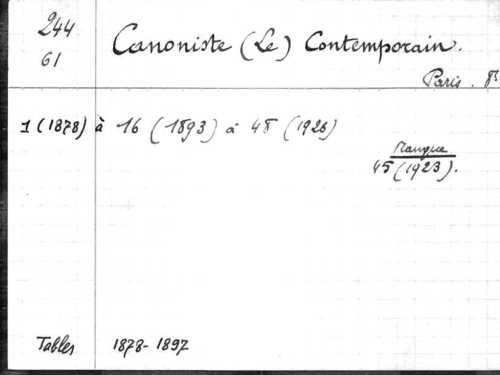 244
61
Canoniste (Le) Contemporain.
Paris. 8°
1 (1878) à 16 (1893) à 48 (1926)
Manque
45 (1923).
Tables 1878-1897